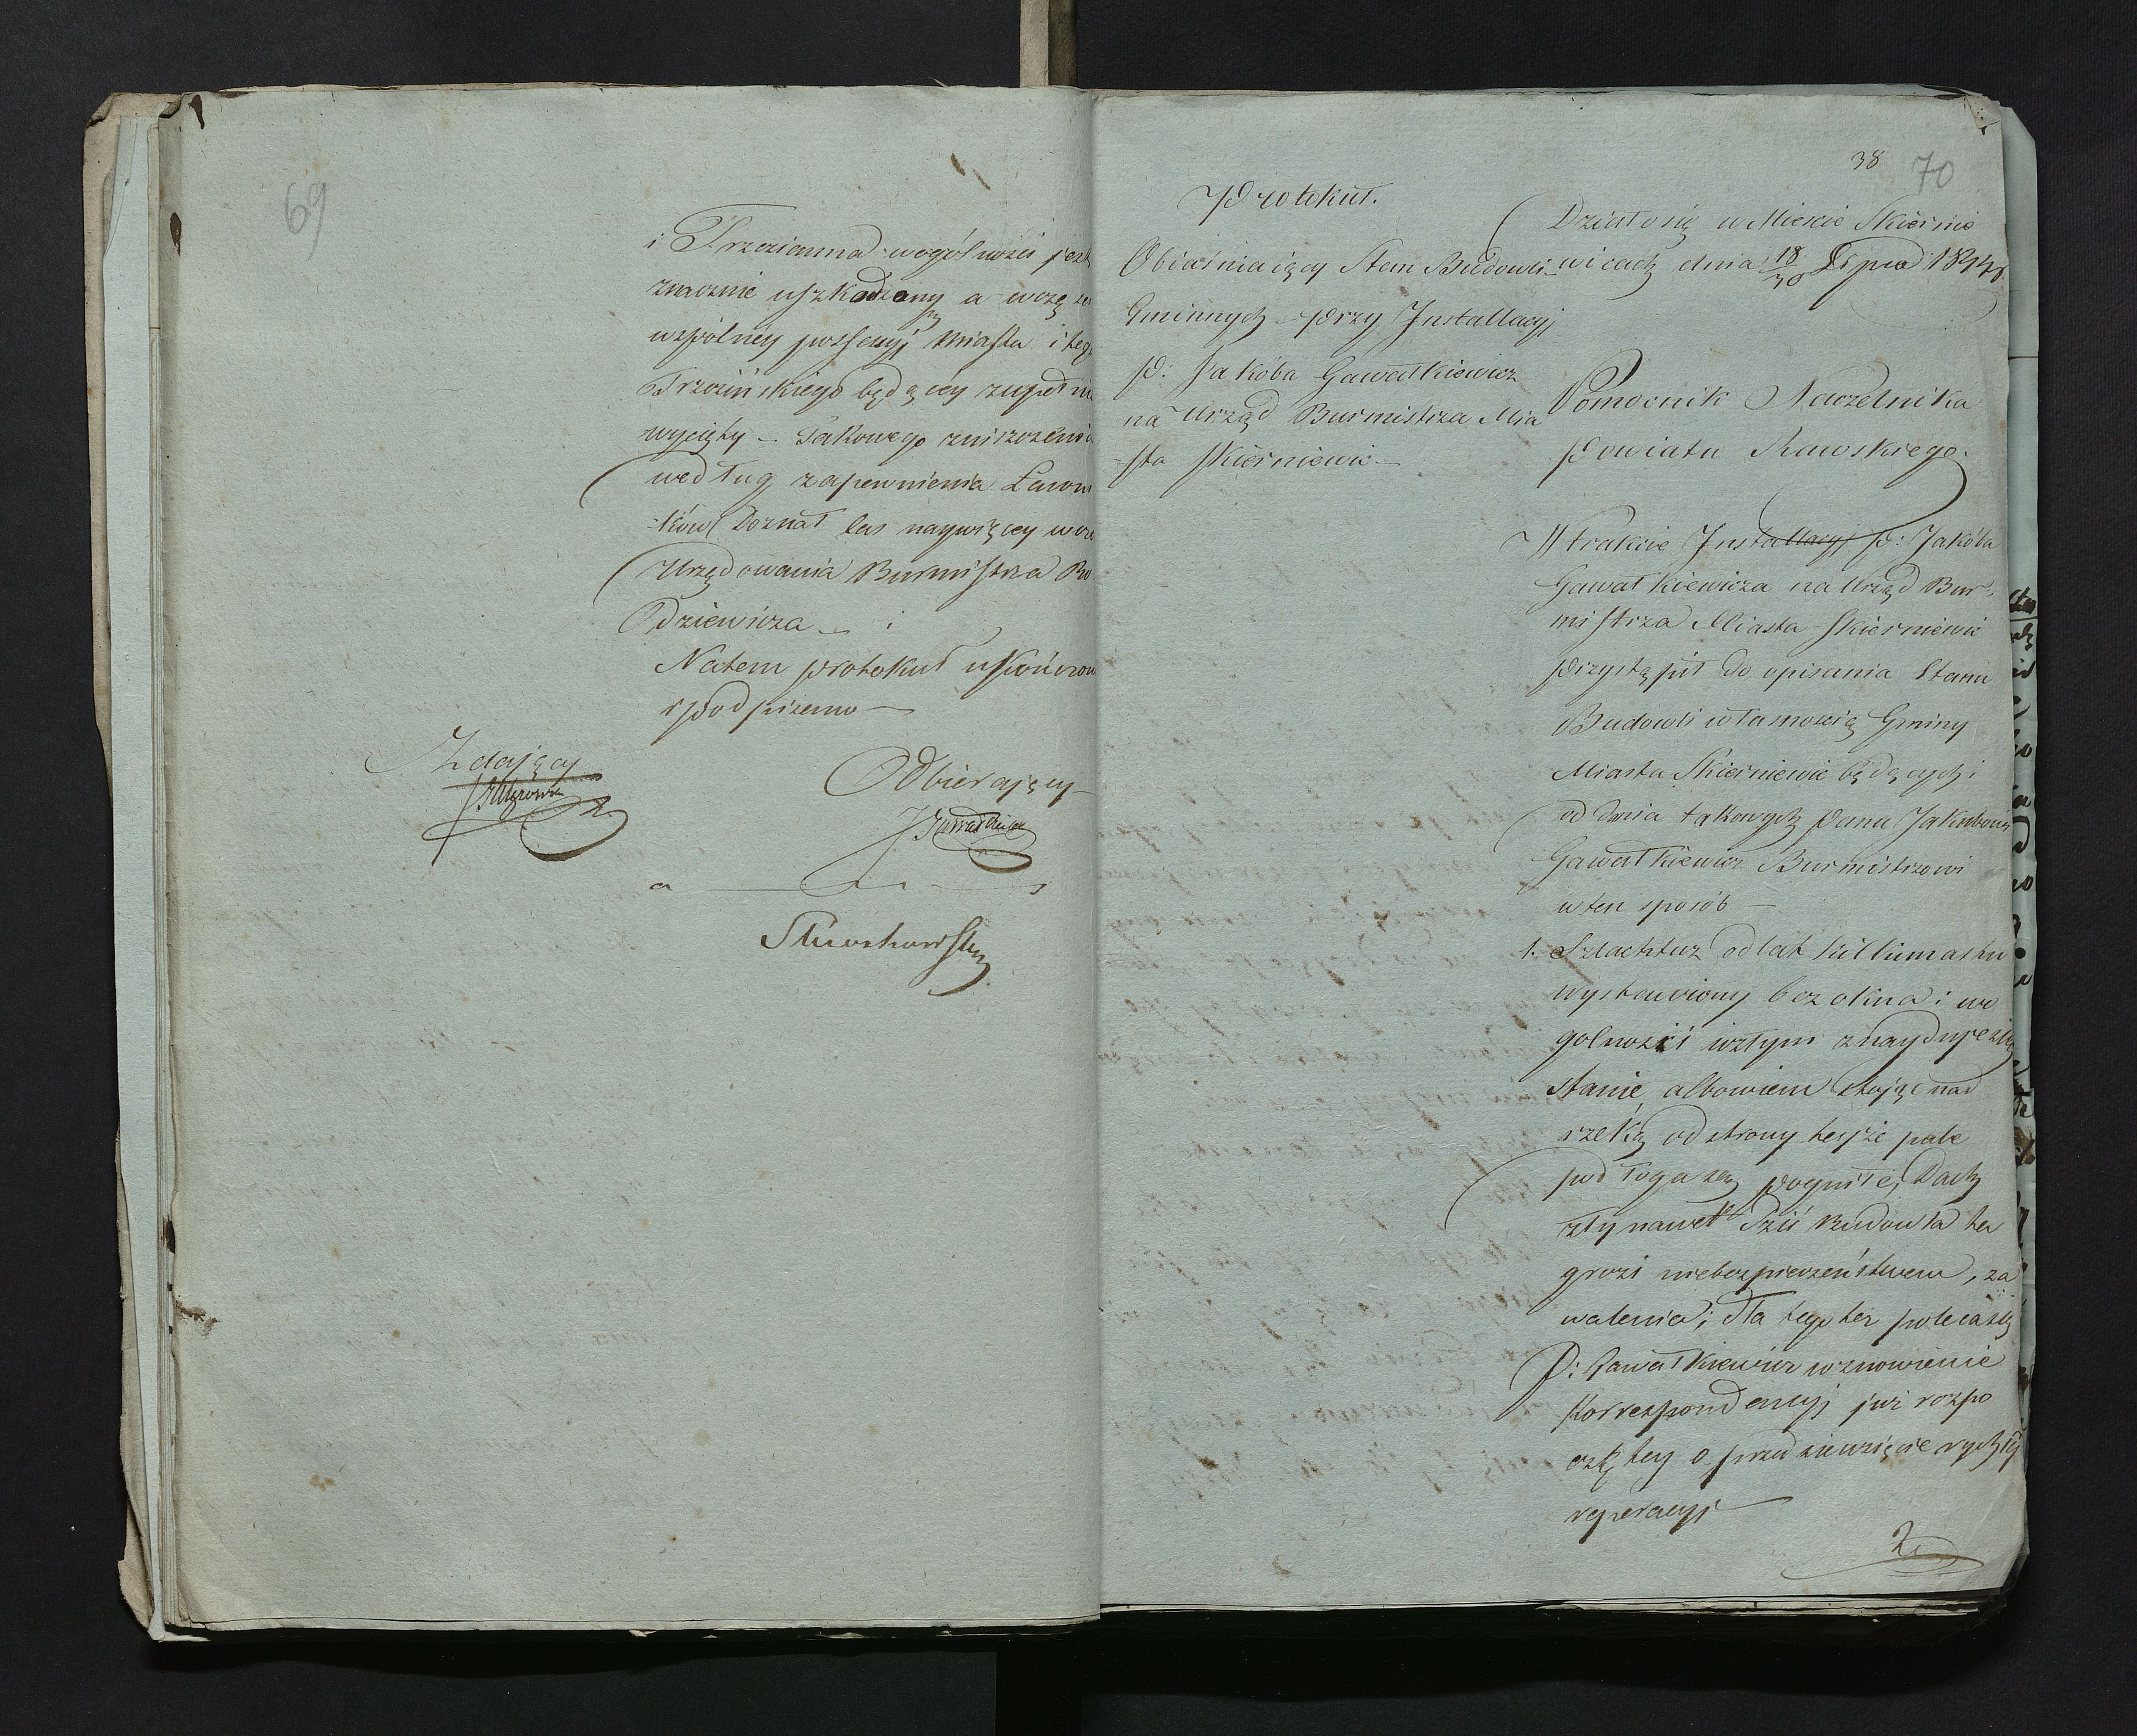 69
i Trzcianna wogólności jest
znacznie uszkodzony a wczę
wspólney possessyj Miasta i teg
Trzcińskiego będącey zupełnie
wycięty – Takowego zniszczenia
według zapewnienia Ławni
ków doznał las naywięcey w cza
Urzędowania Burmistrza Ro
dziewicza –
Natem protokuł ukończon
i podpisano –
Zdający
Odbierający
38 70
Protokuł.
Obiaśniaiący Stan Budowli
Gminnych przy Installacyj
P: Jakóba Gawałkiewicz
na Urząd Burmistrza Mia
sta Skierniewic –
Działo się w Mieście Skiernie
wicach dnia 18/30 Lipca 1844 r
Pomocnik Naczelnika
Powiatu Rawskiego.
W trakcie Installacyj P: Jakóba
Gawałkiewicza na Urząd Bur
mistrza Miasta Skierniewic
przystąpił do opisania Stanu
Budowli własnością Gminy
Miasta Skierniewic będących i
od dania takowych Panu Jakubowi
Gawałkiewicz Burmistrzowi
w ten sposób –
1. Szlachtuz od lat kilkunastu
wystawiony bez okna i wo
golności wzłym znayduje się
stanie, albowiem stojąc nad
rzeką od strony teyże pale
podłoga zey pogniłe, Dach
zły nawet dziś Budowla ta
grozi niebezpieczeństwem, za
walenia; dla tego też poleca się
P: Gawałkiewicz wznowienie
Korrespondencyj już rozpo
czętey o przedsiewzięcie rychłey
reperacyj –
2